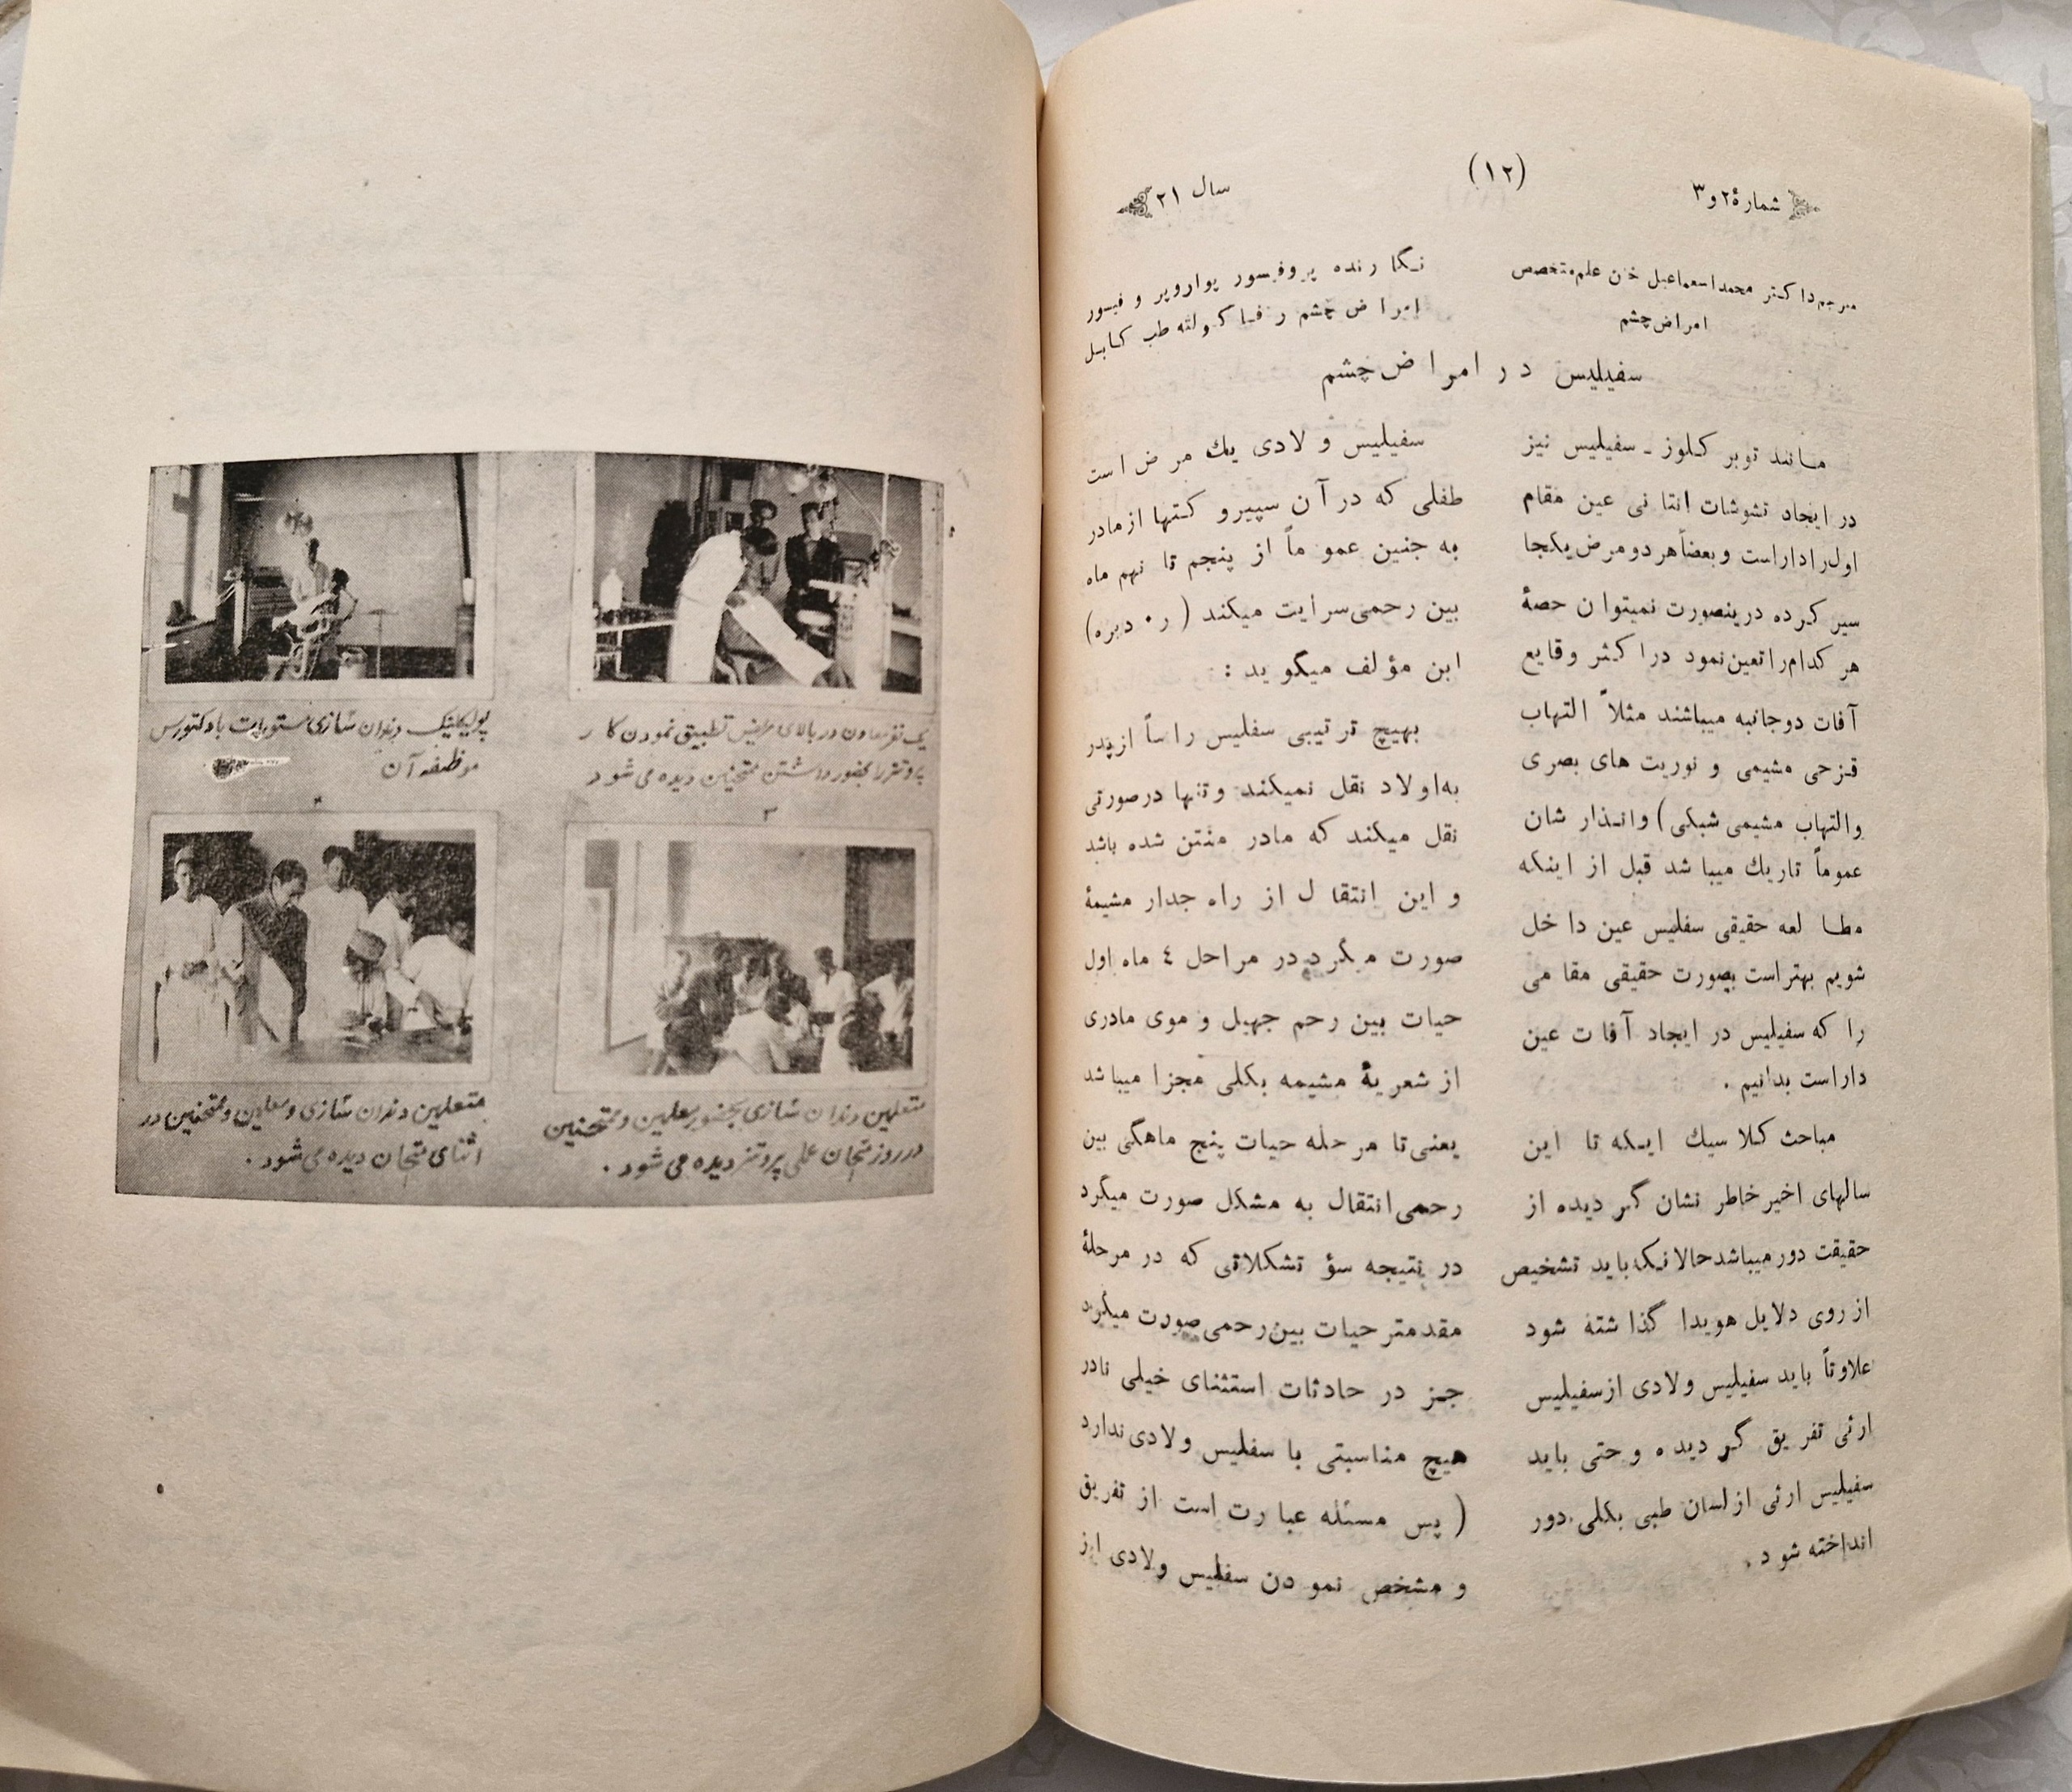 شمارهٔ ۲ و ۳
(۱۲)
سال ۲۱
مترجم داکتر محمد اسعماعیل خان علم متخصص
امراض چشم
نگارنده پروفیسور پواروپر و فیسور
امراض چشم ر فاکولته طب کابل
سفیلیس در امراض چشم
مانند توبر کلوز ـ سفیلیس نیز
در ایجاد تشوشات انتانی عین مقام
اول را داراست و بعضاً هر دو مرض یکجا
سیر کرده درینصورت نمیتوان حصهٔ
هر کدام را تعین نمود در اکثر وقایع
آفات دوجانبه میباشند مثلاً التهاب
قزحی مشیمی و نوریت های بصری
والتهاب مشیمی شبکی) وانذار شان
عموماً تاریك میباشد قبل از اینکه
مطالعه حقیقی سفلیس عین داخل
شویم بهتر است بصورت حقیقی مقامی
را که سفیلیس در ایجاد آفات عین
داراست بدانیم .
مباحث کلاسیك اینکه تا این
سالهای اخیر خاطر نشان گردیده از
حقیقت دور میباشد حالانیکه باید تشخیص
از روی دلایل هویدا گذاشته شود
علاوتاً باید سفیلیس ولادی از سفیلیس
ارثی تفریق گردیده و حتی باید
سفیلیس ارثی از لسان طبی بکلی دور
انداخته شود .
سفیلیس ولادی یك مرض است
طفلی که در آن سپیرو کتها از مادر
به جنین عموماً از پنجم تا نهم ماه
بین رحمی سرایت میکند (ر۰ دبره)
این مؤلف میگوید :
بهیچ ترتیبی سفلیس راساً از پدر
به اولاد نقل نمیکند و تنها در صورتی
نقل میکند که مادر منتن شده باشد
و این انتقال از راه جدار مشیمهٔ
صورت میگردد در مراحل ٤ ماه اول
حیات بین رحم جهیل و موی مادری
از شعریهٔ مشیمه بکلی مجزا میباشد
یعنی تا مرحله حیات پنج ماهگی بین
رحمی انتقال به مشکل صورت میگرد
در نتیجه سؤ تشکلاتی که در مرحلهٔ
مقدمتر حیات بین رحمی صورت میگرد
جز در حادثات استثنای خیلی نادر
هیچ مناسبتی با سفلیس ولادی ندارد
( پس مسئله عبارت است از تفریق
و مشخص نمودن سفلیس ولادی از
یك نفر معاون در بالای مریض تطبیق نمودن کار
پروتز را بحضور داشتن ممتحنین دیده می شود
پولیکلینیك دندان سازی مستورات با دکتورس
موظفه آن
متعلمین دندان سازی بحضور معلمین و ممتحنین
در روز امتحان عملی پروتز دیده می شود .
متعلمین دندان سازی و معلمین و ممتحنین در
اثنای امتحان دیده می شود .